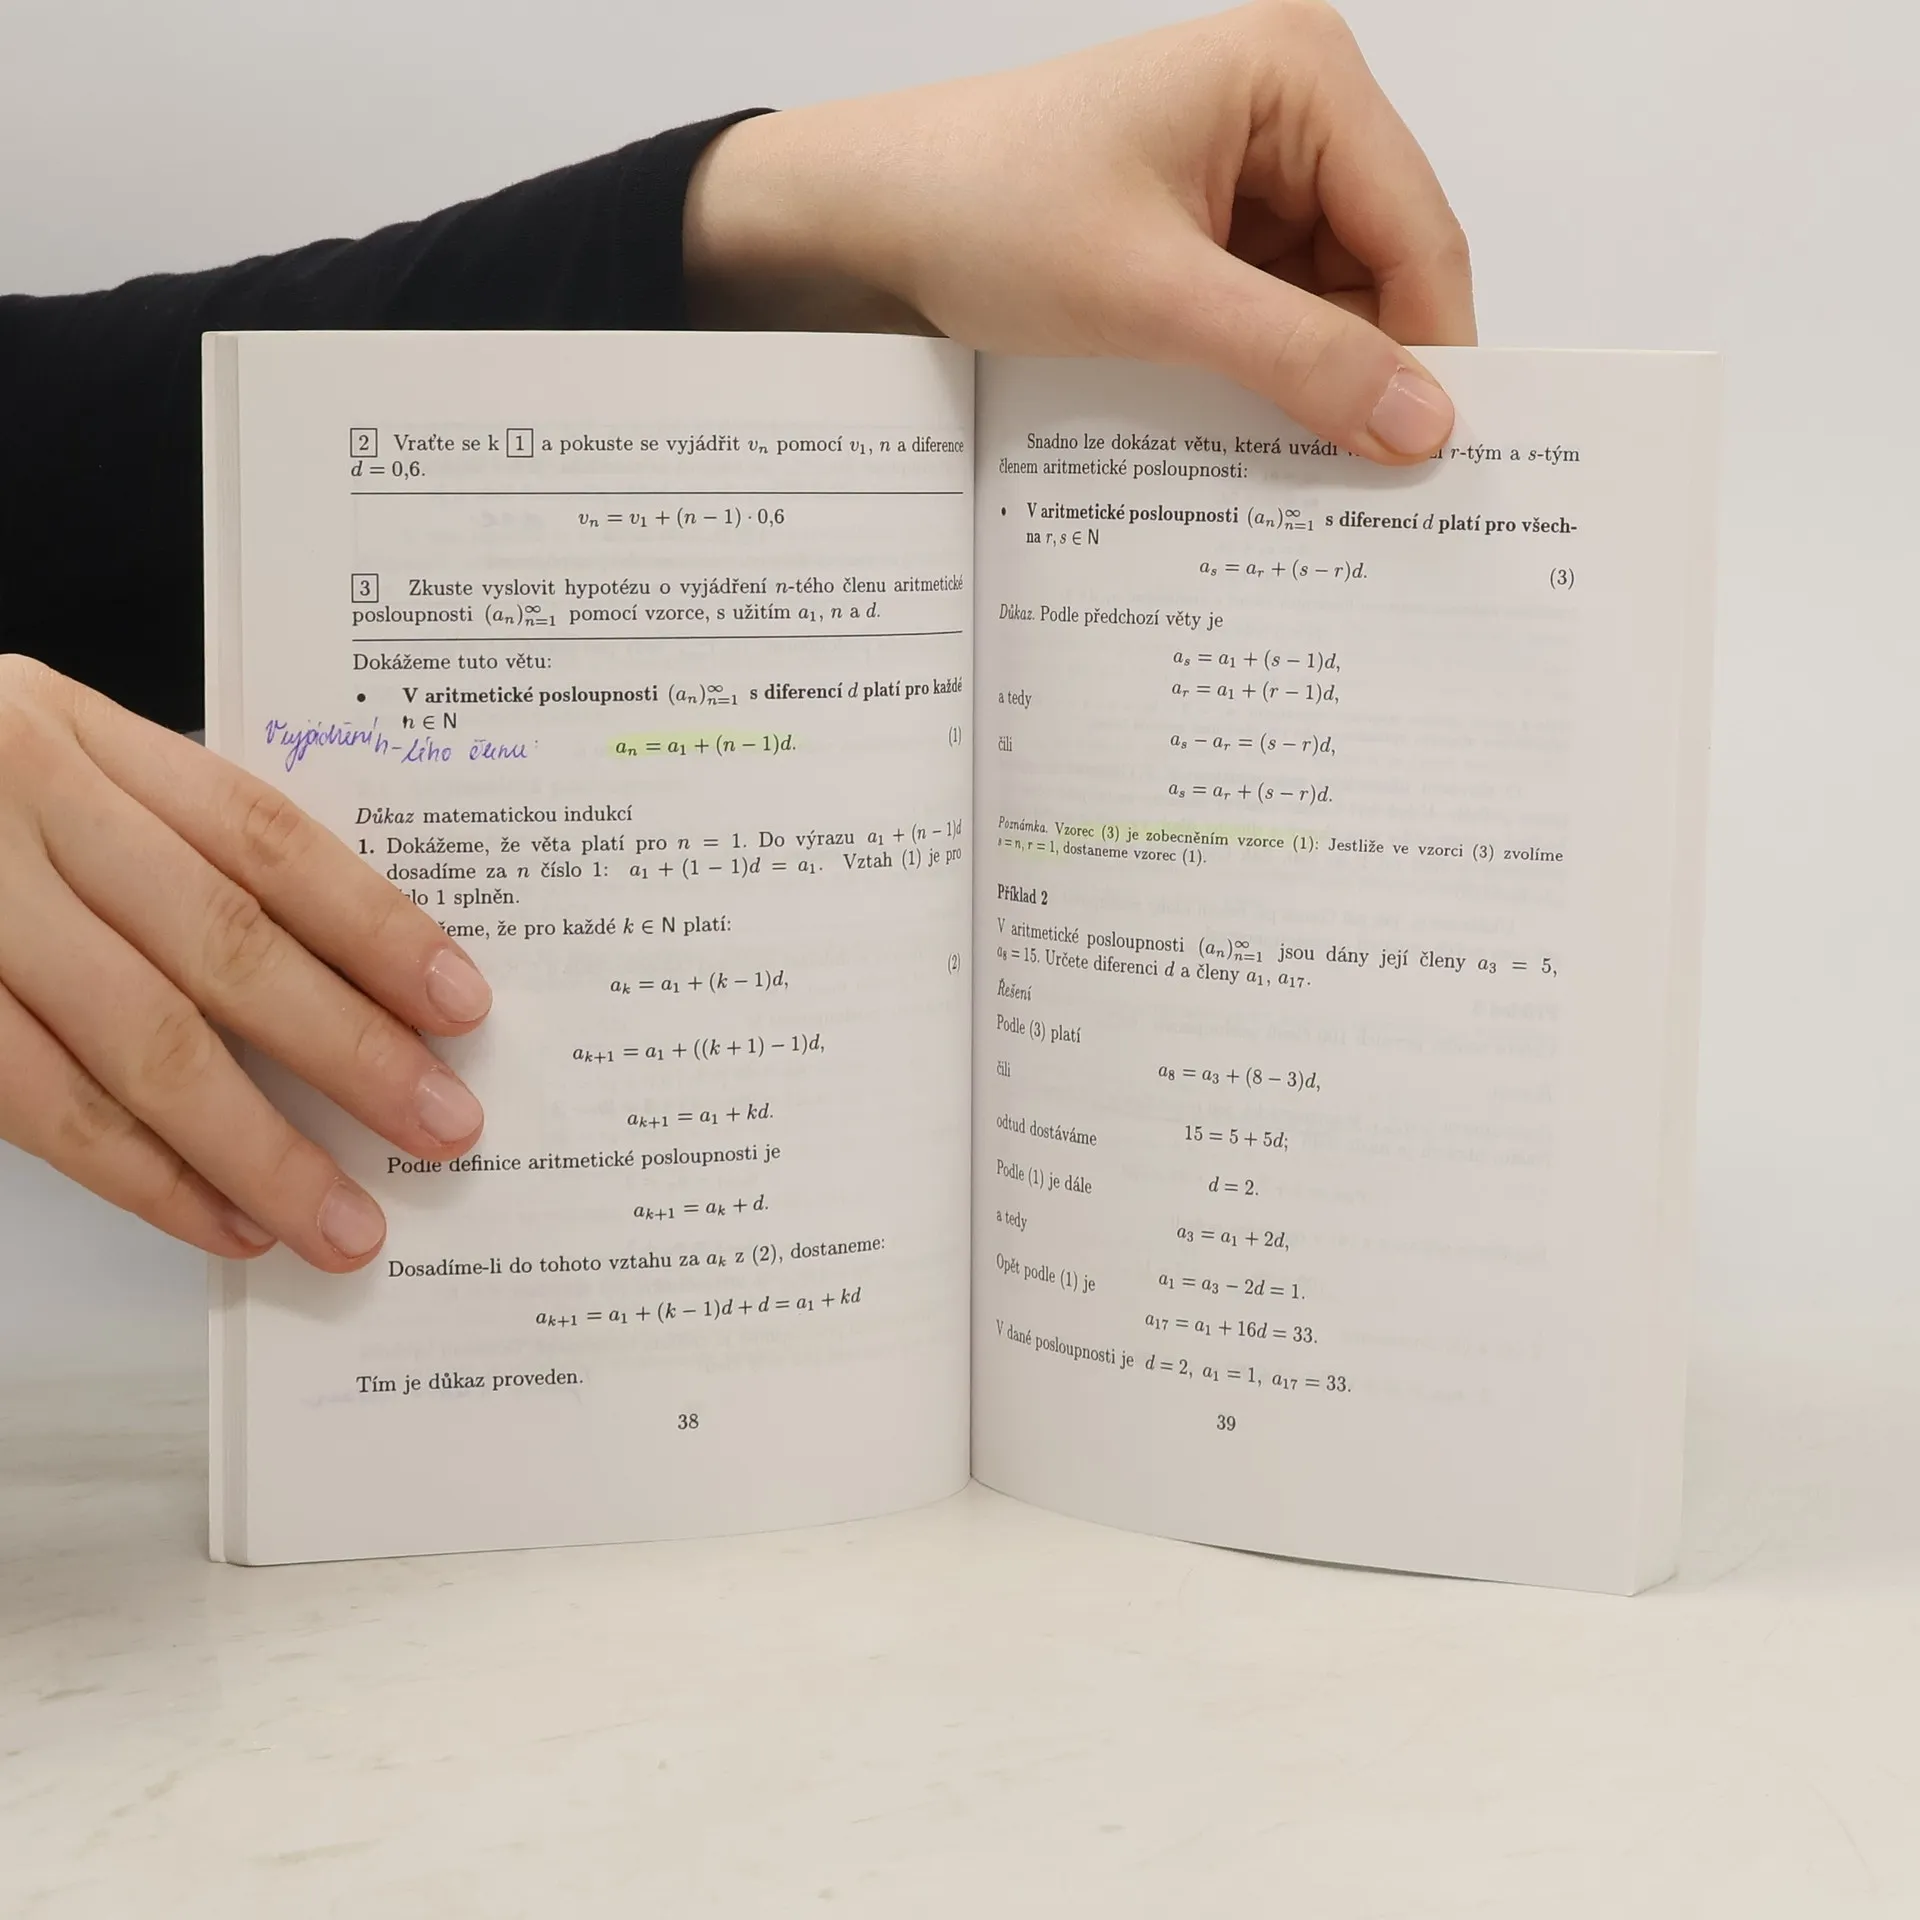 2 Vraťte se k 1 a pokuste se vyjádřit vₙ pomocí v₁, n a diference
d = 0,6.
vₙ = v₁ + (n − 1) · 0,6
3 Zkuste vyslovit hypotézu o vyjádření n-tého členu aritmetické
posloupnosti (aₙ)∞ₙ₌₁ pomocí vzorce, s užitím a₁, n a d.
Dokážeme tuto větu:
• V aritmetické posloupnosti (aₙ)∞ₙ₌₁ s diferencí d platí pro každé
n ∈ N
Vyjádření n-tého členu:
aₙ = a₁ + (n − 1)d. (1)
Důkaz matematickou indukcí
1. Dokážeme, že věta platí pro n = 1. Do výrazu a₁ + (n − 1)d
dosadíme za n číslo 1: a₁ + (1 − 1)d = a₁. Vztah (1) je pro
1 splněn.
že pro každé k ∈ N platí:
aₖ = a₁ + (k − 1)d, (2)
aₖ₊₁ = a₁ + ((k + 1) − 1)d,
aₖ₊₁ = a₁ + kd.
Podle definice aritmetické posloupnosti je
aₖ₊₁ = aₖ + d.
Dosadíme-li do tohoto vztahu za aₖ z (2), dostaneme:
aₖ₊₁ = a₁ + (k − 1)d + d = a₁ + kd
Tím je důkaz proveden.
38
Snadno lze dokázat větu, která uvádí r-tým a s-tým
členem aritmetické posloupnosti:
• V aritmetické posloupnosti (aₙ)∞ₙ₌₁ s diferencí d platí pro všech-
na r, s ∈ N
aₛ = aᵣ + (s − r)d. (3)
Důkaz. Podle předchozí věty je
aₛ = a₁ + (s − 1)d,
a tedy aᵣ = a₁ + (r − 1)d,
čili aₛ − aᵣ = (s − r)d,
aₛ = aᵣ + (s − r)d.
Poznámka. Vzorec (3) je zobecněním vzorce (1): Jestliže ve vzorci (3) zvolíme
s = n, r = 1, dostaneme vzorec (1).
Příklad 2
V aritmetické posloupnosti (aₙ)∞ₙ₌₁ jsou dány její členy a₃ = 5,
a₈ = 15. Určete diferenci d a členy a₁, a₁₇.
Řešení
Podle (3) platí
čili a₈ = a₃ + (8 − 3)d,
odtud dostáváme 15 = 5 + 5d;
Podle (1) je dále d = 2.
a tedy a₃ = a₁ + 2d,
Opět podle (1) je a₁ = a₃ − 2d = 1.
a₁₇ = a₁ + 16d = 33.
V dané posloupnosti je d = 2, a₁ = 1, a₁₇ = 33.
39